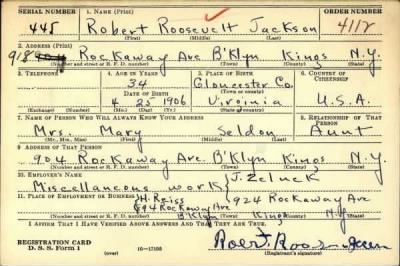 SERIAL NUMBER 1. NAME (Print) ORDER NUMBER
445 Robert Roosevelt Jackson 4112
(First) (Middle) (Last)
2. ADDRESS (Print)
918 Rockaway Ave B'klyn Kings N.Y.
(Number and street or R. F. D. number) (Town) (County) (State)
3. TELEPHONE 4. AGE IN YEARS 5. PLACE OF BIRTH 6. COUNTRY OF CITIZENSHIP
34 Gloucester Co.
DATE OF BIRTH (Town or county)
4 23 1906 Virginia U.S.A.
(Exchange) (Number) (Mo.) (Day) (Yr.) (State or country)
7. NAME OF PERSON WHO WILL ALWAYS KNOW YOUR ADDRESS 8. RELATIONSHIP OF THAT PERSON
Mrs. Mary Seldon Aunt
(Mr., Mrs., Miss) (First) (Middle) (Last)
9. ADDRESS OF THAT PERSON
904 Rockaway Ave. B'klyn Kings N.Y.
(Number and street or R. F. D. number) (Town) (County) (State)
10. EMPLOYER'S NAME
Miscellaneous work J. Zeluck
11. PLACE OF EMPLOYMENT OR BUSINESS H. Reiss 924 Rockaway Ave
Rockaway Ave B'klyn Kings N.Y.
(Number and street or R. F. D. number) (Town) (County) (State)
I AFFIRM THAT I HAVE VERIFIED ABOVE ANSWERS AND THAT THEY ARE TRUE.
REGISTRATION CARD
D. S. S. Form 1 (over) 16—17105 (Registrant's signature)